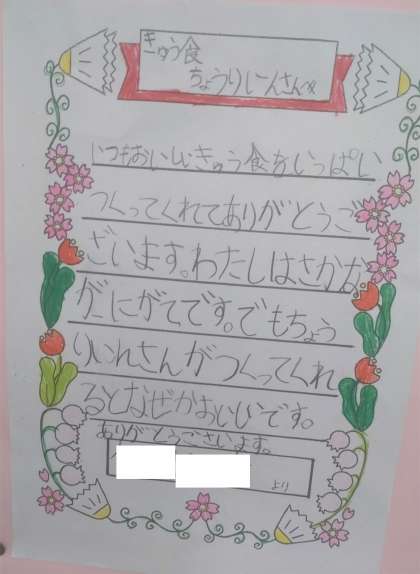 きゅう食
ちょうりいんさんへ
いつもおいしいきゅう食をいっぱい
つくってくれてありがとうご
ざいます。わたしはさかな
がにがてです。でもちょう
りいんさんがつくってくれ
るとなぜかおいしいです。
ありがとうございます。
より